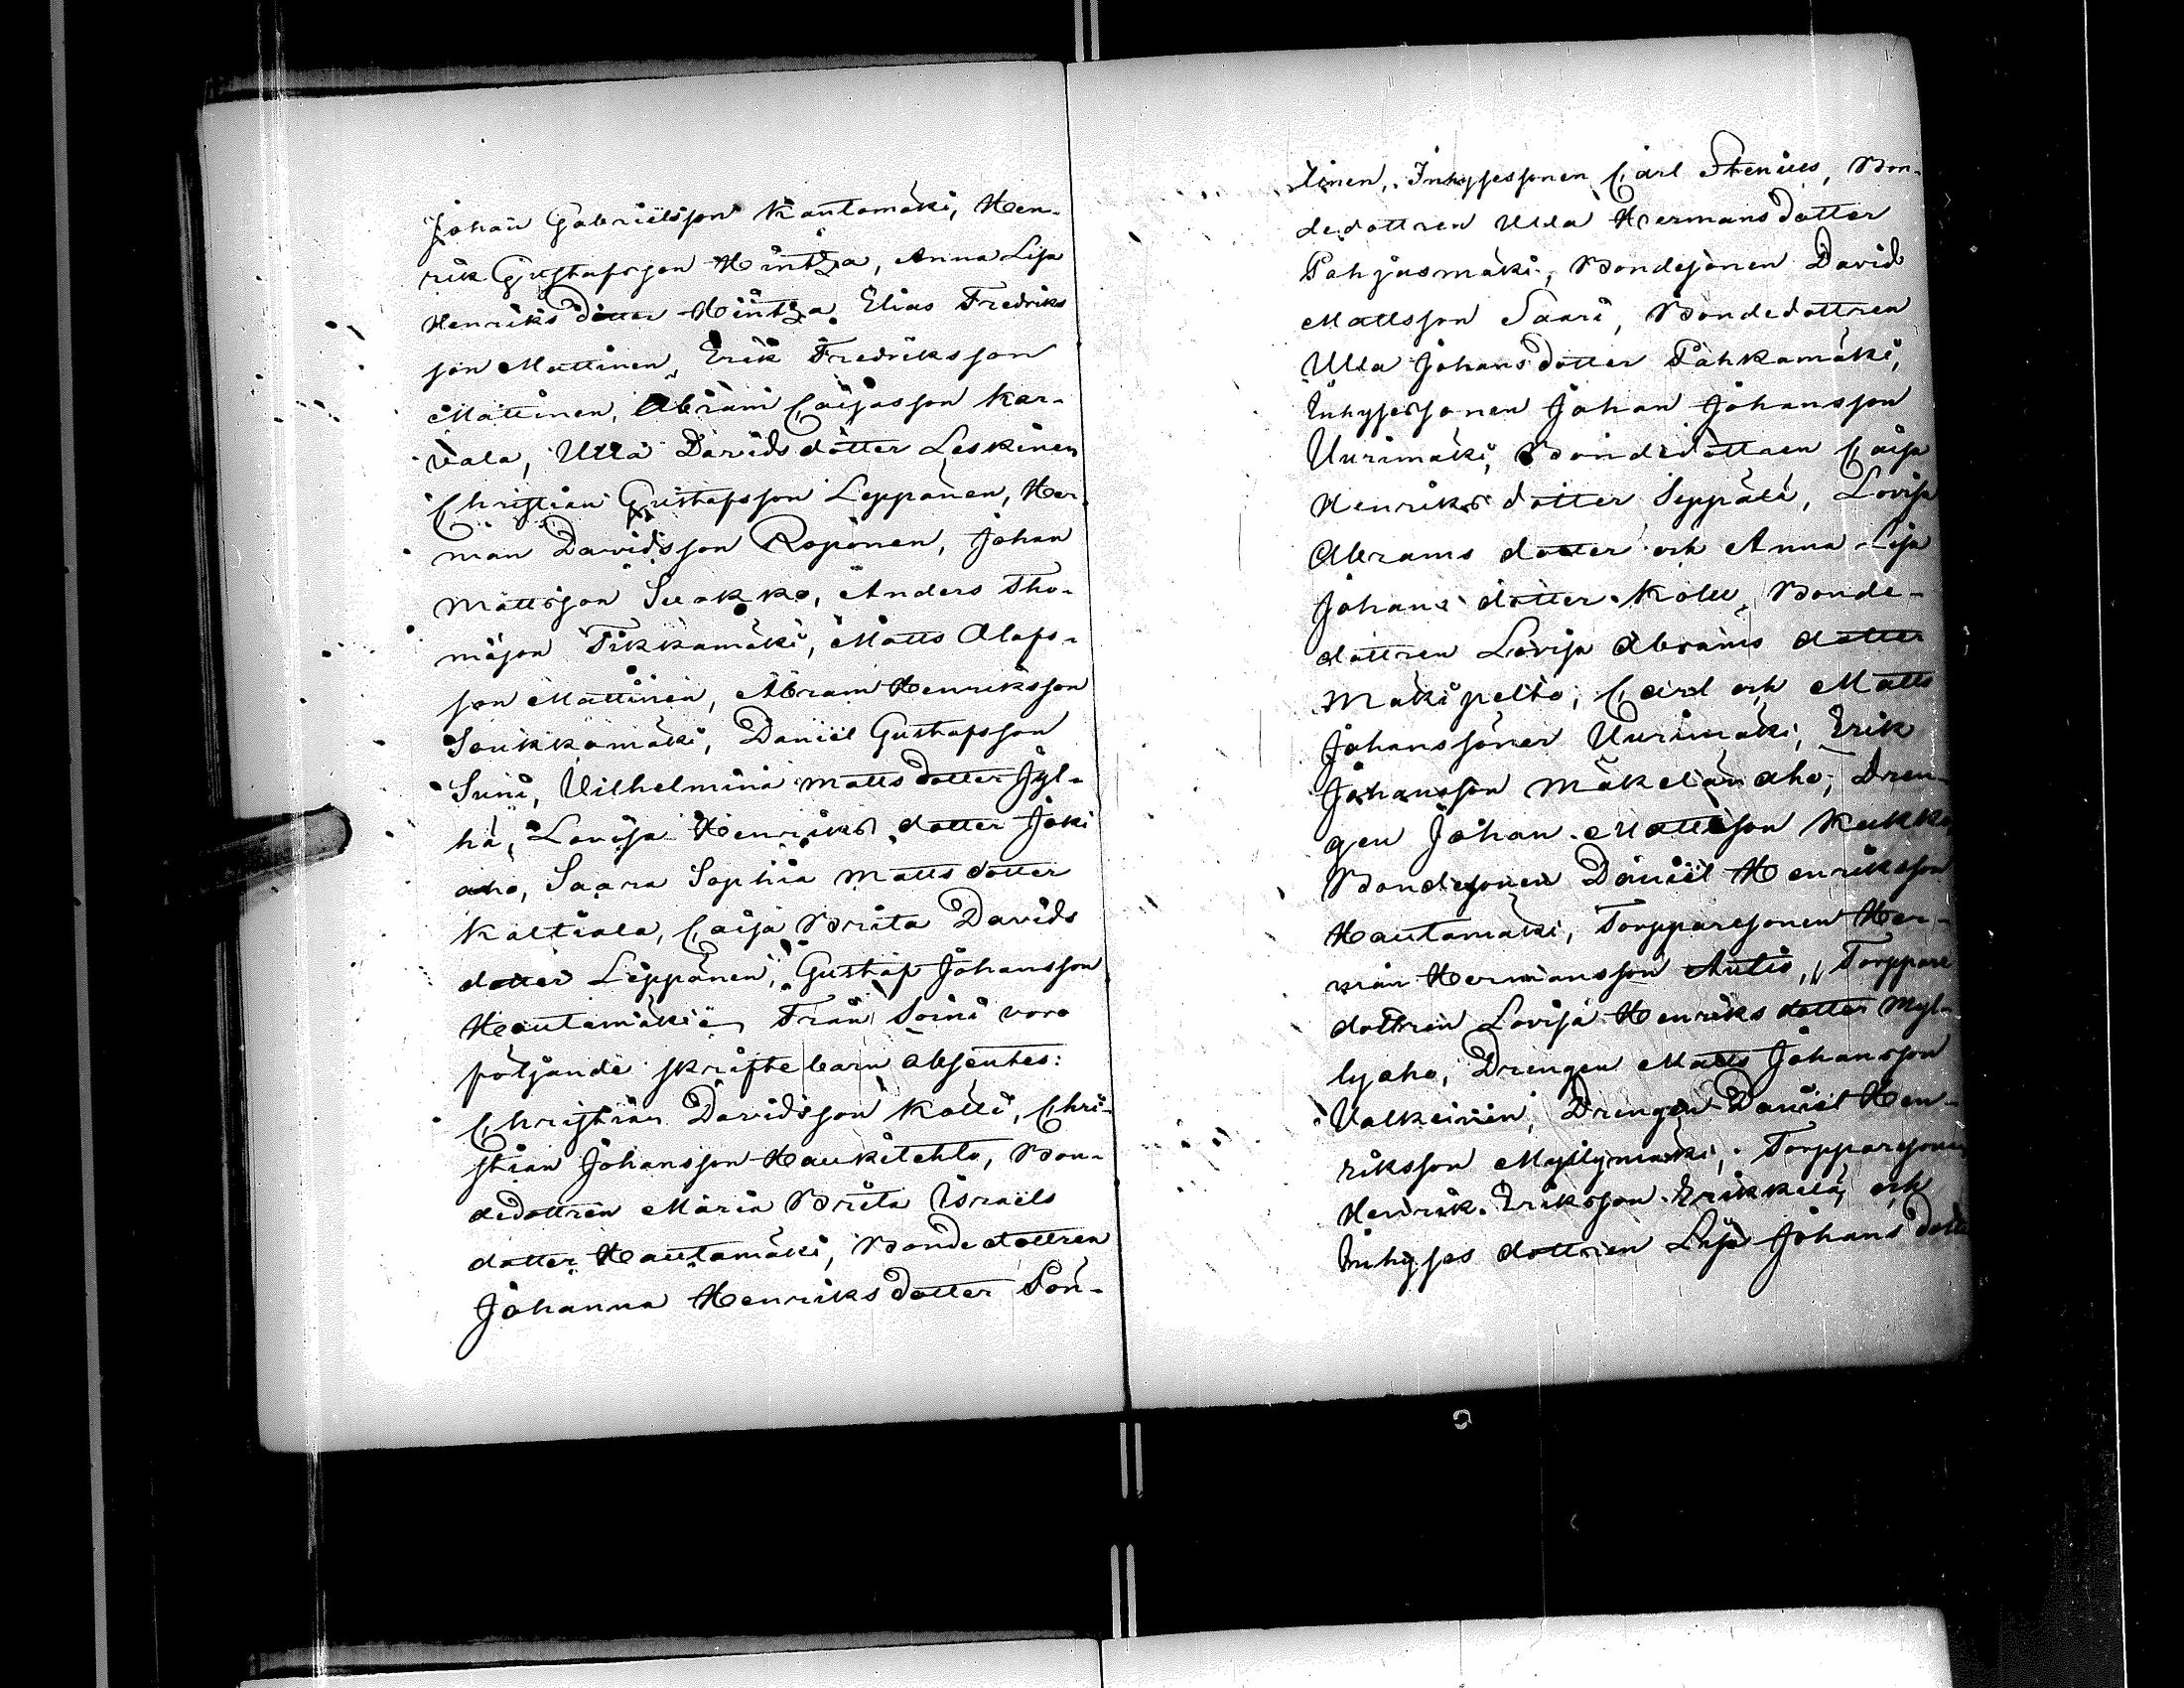 Johan Gabrielsson Kautamäki, Hen-
rik Gustafsson Hintza, Anna Lisa
Henriks dotter Hintza, Elias Fredriks
son Mattinen, Erik Fredriksson
Mattinen, Abram Caijasson Kar-
vala, Ulla Davids dotter Leskinen
Christian Gustafsson Leppänen, Her
man Davidsson Roponen, Johan
Mattsson Suokko, Anders Tho-
mäson Tikkamäki, Matts Olofs-
son Mattinen, Abram Henriksson
Soukkamäki, Daniel Gustafsson
Suni, Vilhelmina Matts dotter Jyl-
hä, Lovisa Henriks dotter Joki
aho, Saara Sophia Matts dotter
Kaltiala, Caisa Brita Davids
dotter Leppänen, Gustaf Johansson
Hautamäki. Från Soini voro
följande skriftebarn absentes:
Christian Davidsson Kolli, Chri-
stian Johansson Haukitehto, Bon-
dedottren Maria Brita Israels
dotter Hautamäki, Bondedottren
Johanna Henriks dotter Pön-
tinen, Inhysessonen Carl Stenius, Bon-
dedottren Ulla Hermans dotter
Pohjasmäki, Bondesonen David
Mattsson Saari, Bondedottren
Ulla Johans dotter Pahkamäki,
Inhysessonen Johan Johansson
Uurimäki, Bondedottren Caisa
Henriks dotter Seppälä, Lovisa
Abrams dotter och Anna Lisa
Johans dotter Kolu, Bonde-
dottren Lovisa Abrams dotter
Mäkipelto, Carl och Matts
Johanssöner Uurimäki, Erik
Johansson Mäkelänaho, Dren-
gen Johan Mattsson Kukko,
Bondesonen Daniel Henriksson
Hautamäki, Torpparesonen Her-
man Hermansson Autio, Torppare
dottren Lovisa Henriks dotter Myl-
lyaho, Drengen Matts Johansson
Valkeinen, Drengen Daniel Hen-
riksson Myllymäki, Torpparesonen
Henrik Eriksson Erikkilä, och
Inhyses dottren Lisa Johans dotter